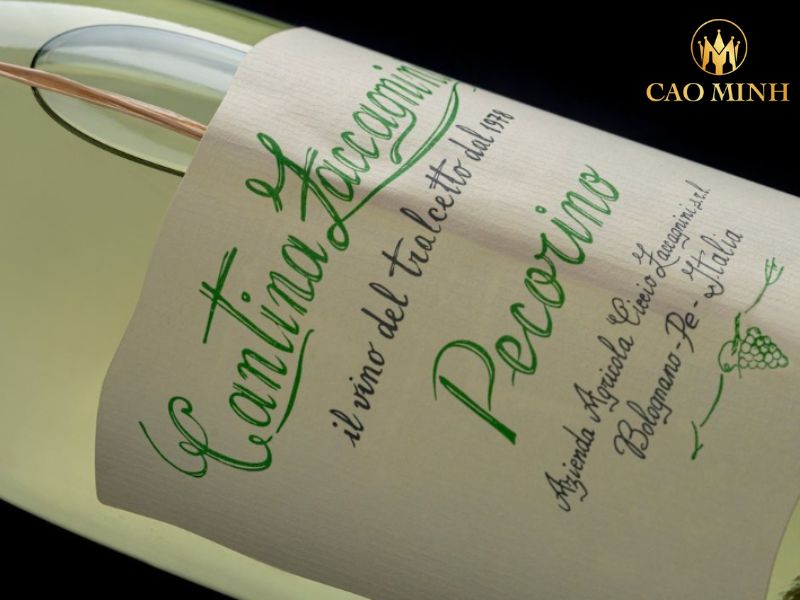 CAO MINH
Cantina Zaccagnini
il vino del tralcetto dal 1978
Pecorino
Azienda Agricola Ciccio Zaccagnini s.r.l.
Bolognano-Pe-Italia